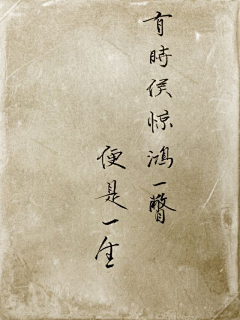 有時侯惊鴻一瞥
便是一生